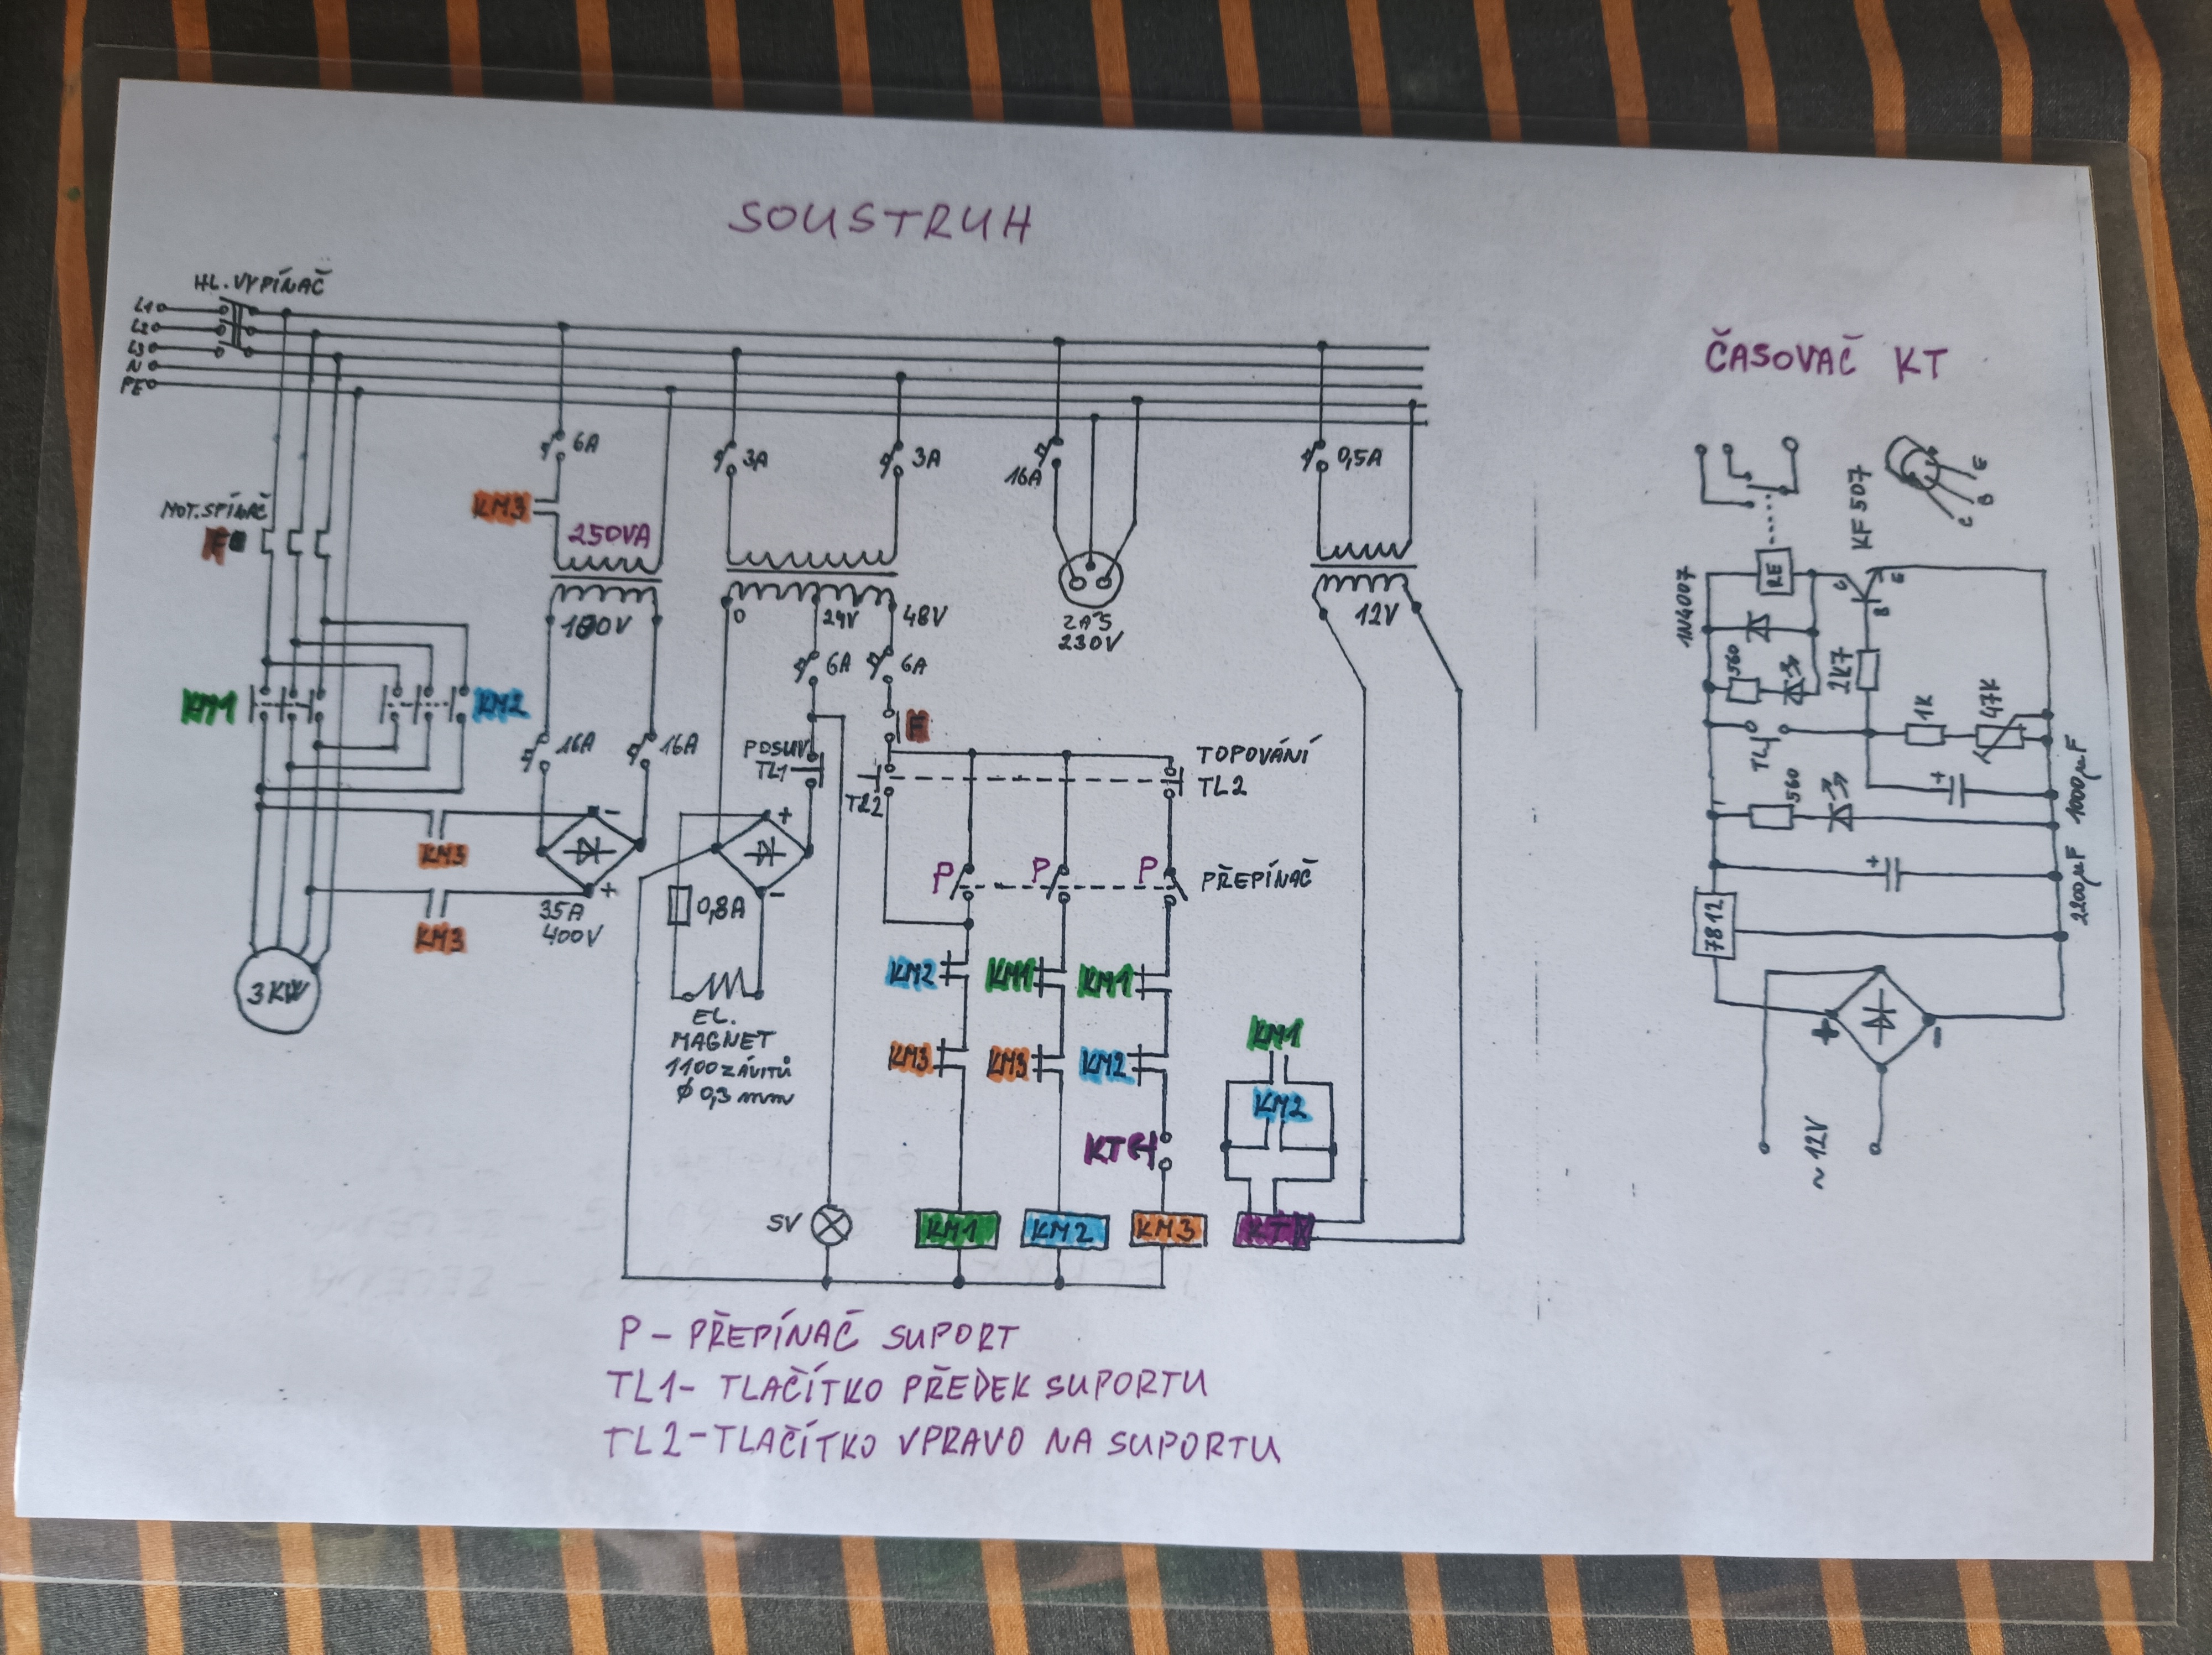 SOUSTRUH
HL. VYPÍNAČ
L1
L2
L3
N
PE
6A
3A
3A
16A
0,5A
MOT. SPÍNAČ
F
KM3
250VA
0
24V
48V
ZAS
230V
12V
6A
6A
F
KM1
KM2
16A
16A
POSUV
TL1
TL2
TOPOVÁNÍ
TL2
KM3
KM3
-
+
35A
400V
+
-
0,8A
P
P
P
PŘEPÍNAČ
3KW
EL.
MAGNET
1100 ZÁVITŮ
Ø 0,3 mm
KM2
KM1
KM1
KM3
KM3
KM2
KT
KM1
KM2
SV
KM1
KM2
KM3
KT
P - PŘEPÍNAČ SUPORT
TL1 - TLAČÍTKO PŘEDEK SUPORTU
TL2 - TLAČÍTKO VPRAVO NA SUPORTU
ČASOVAČ KT
KF 507
E
B
C
1N4007
RE
C
B
E
560
2K7
TL1
1K
47K
560
+
1000µF
+
2200µF
7812
+
-
~12V